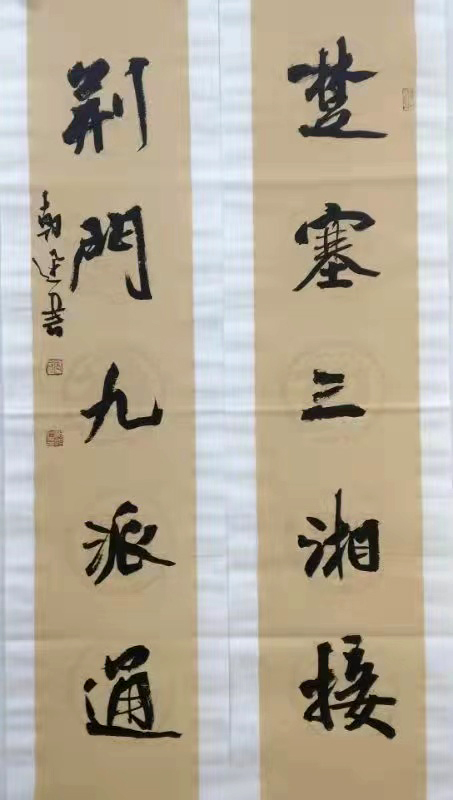 楚塞三湘接
荆門九派通